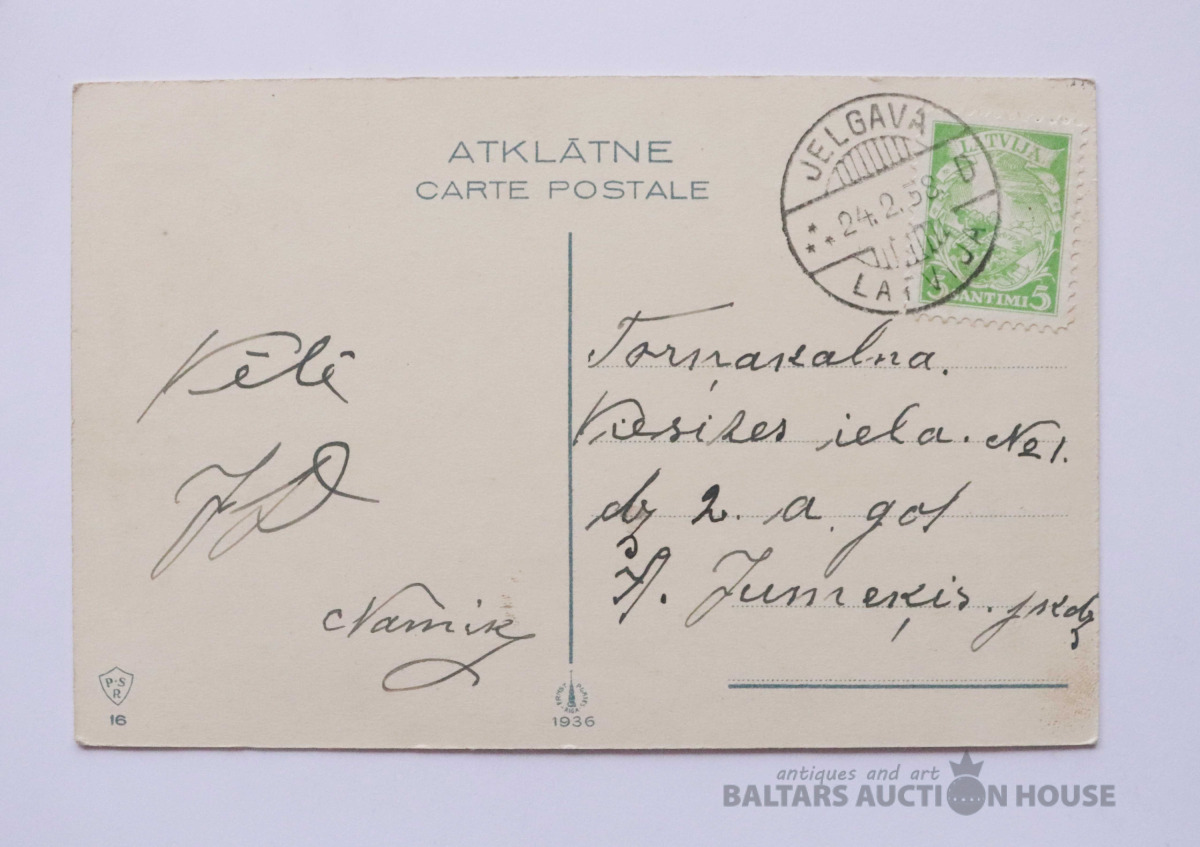 ATKLĀTNE
CARTE POSTALE
JELGAVA
D
24.2.38
LATVIJA
LATVIJA
5 SANTIMI 5
Vēlē
Torņakalna.
Viesītes iela. № 1.
dz 2. a. god
J. Jumeķis. jkdz
P.S
R
16
RĪGA
1936
antiques and art
BALTARS AUCTION HOUSE